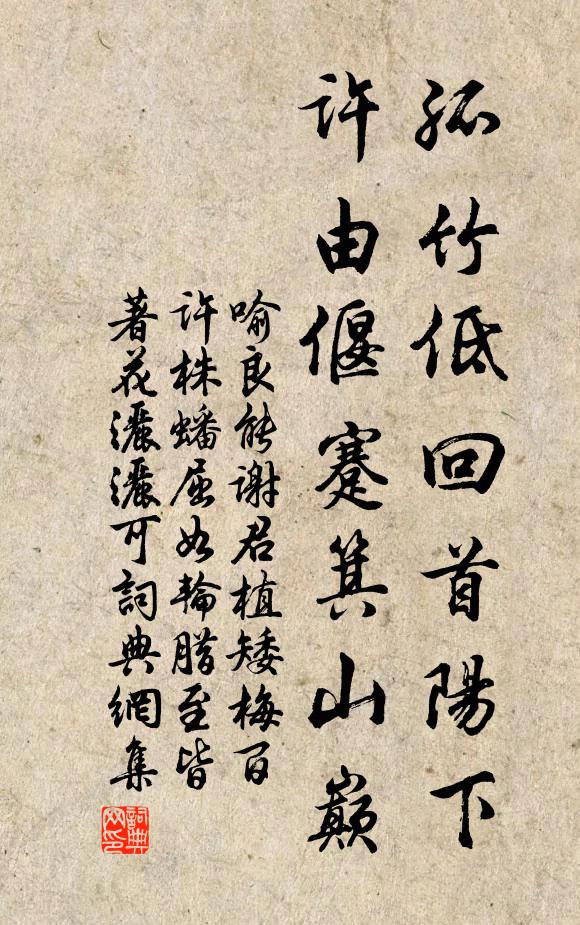 孤竹低回首陽下
許由偃蹇箕山巔
喻良能謝君植矮梅百
許株蟠屈如輪腊至皆
著花灑灑可詞典網集
詞典網印